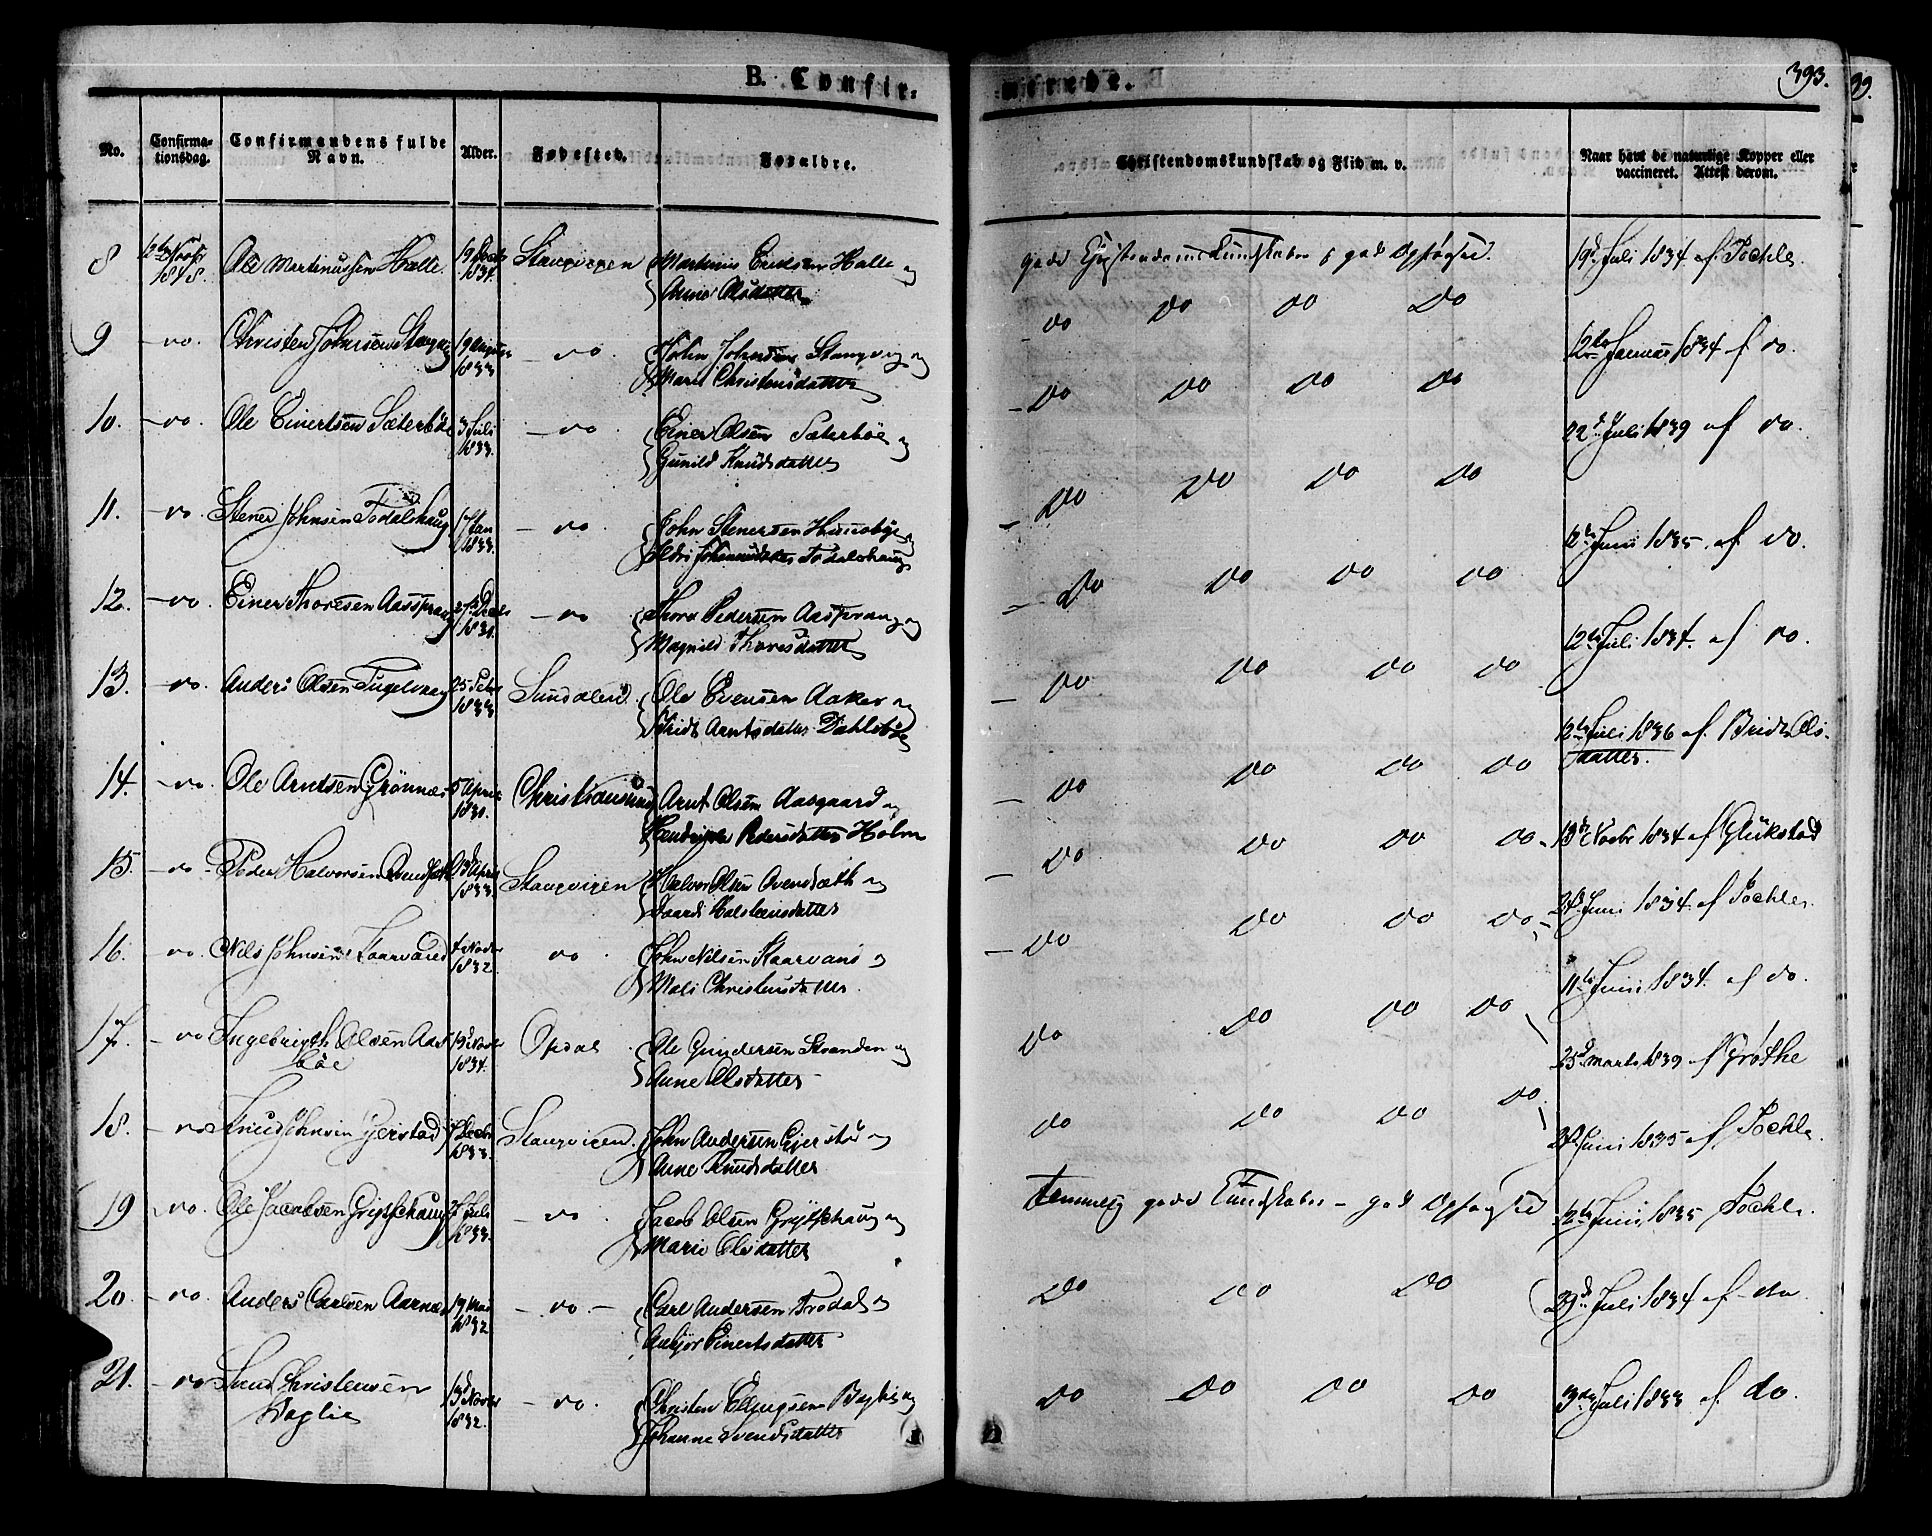 B. Confir-
merede.
393.
No.
Confirma-
tionsdag.
Confirmandens fulde
Navn.
Alder.
Fødested.
Forældre.
Christendomskundskab og Flid m. v.
Naar havt de naturlige Kopper eller
vaccineret. Attest derom.
8
1848.
Ole Martinussen Halle
19 Decbr
1834.
Stangvigen
Martinus Ericksen Halle og
Anne Olsdatter
gode Christendoms Kundskaber og god Opførsel.
19de Juli 1834 af Bøchler
9
- do.
Christen Johnsen Stangvig
19 August
1833
- do.
John Johnsen Stangvig og
Marit Christensdatter
do do do do
12te Januar 1834 af do.
10.
- do.
Ole Einertsen Sæterbøe
3 Juli
1833.
- do
Einer Olsen Sæterbøe og
Gunild Knudsdatter
- do do do do
22de Juli 1839 af do.
11.
- do.
Stener Johnsen Todalshaug
17 Jan
1833.
- do
John Stenersen
Todalshaug
- do do do do
12te Juni 1835. af do.
12.
- do.
Einer Thoresen Aasprang
Decbr
- do
Thore Pedersen Aasprang og
Magnild Thoresdatter
- do do do do
12te Juli 1834. af do.
13.
- do.
Anders Olsen Fugelvaag
25 Febr
1833
Sundalen
Ole Evensen Aaker og
Arntsdatter Dahlsbøe
- do do do do
12te Juli 1836 af Brid Ols-
datter.
14.
- do.
Ole Arntsen Grønnæs
5 April
Christiansund
Arnt Olsen Aasgaard og
Pedersdatter Holm
- do do do do
Novbr 1834 af Glükstad
15.
- do -
Peder Halvorsen
13 April
1833.
Stangvigen
Halvor Olsen og
Halsteinsdatter
- do do do do
Juni 1834. af Bøchler
16.
- do.
Nils Johnsen Kaarvand
4 Novbr
1832.
do.
John Nilsen Kaarvand og
Mali Christensdatter
- do do do do
11te Juni 1834. af do.
17.
- do
Ingebrigth Olsen Aas-
bøe
19 Novbr
1834.
Opdal
Ole Gundersen Stranden og
Anne Olsdatter
do do do do
25de Marts 1839 af Grøthe
18.
- do
Knud Johnsen Gjerstad
Decbr
1833.
Stangvigen.
John Andersen Gjerstad og
Anne Knudsdatter
do do do do
Juni 1835 af Bøchler.
19
- do.
Ole Jacobsen
Juli
1833.
- do
Jacob Olsen og
Marie Olsdatter
temmelig gode Kundskaber - god Opførsel
12te Juni 1835 Bøchler.
20
- do.
Anders Carlsen Aarnæs
19 Mai
1832
- do. -
Carl Andersen Trodal og
Anbjør Einertsdatter
do do do
29de Juli 1834 af do
21.
- do
Christensen
Bøglie
13 Novbr
1832.
- do.
Christen og
Johanne Svendsdatter
do do do do
3die Juli 1833 af do.